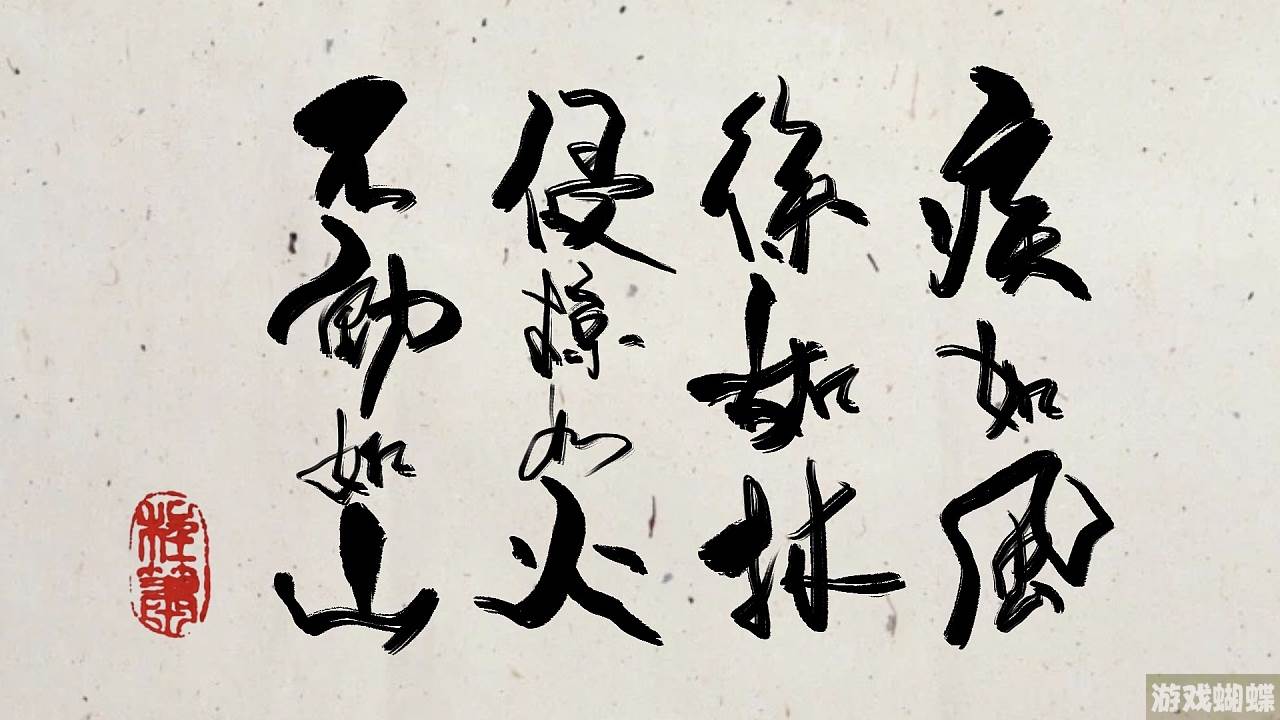 疾如風
徐如林
侵掠如火
不動如山
游戏蝴蝶